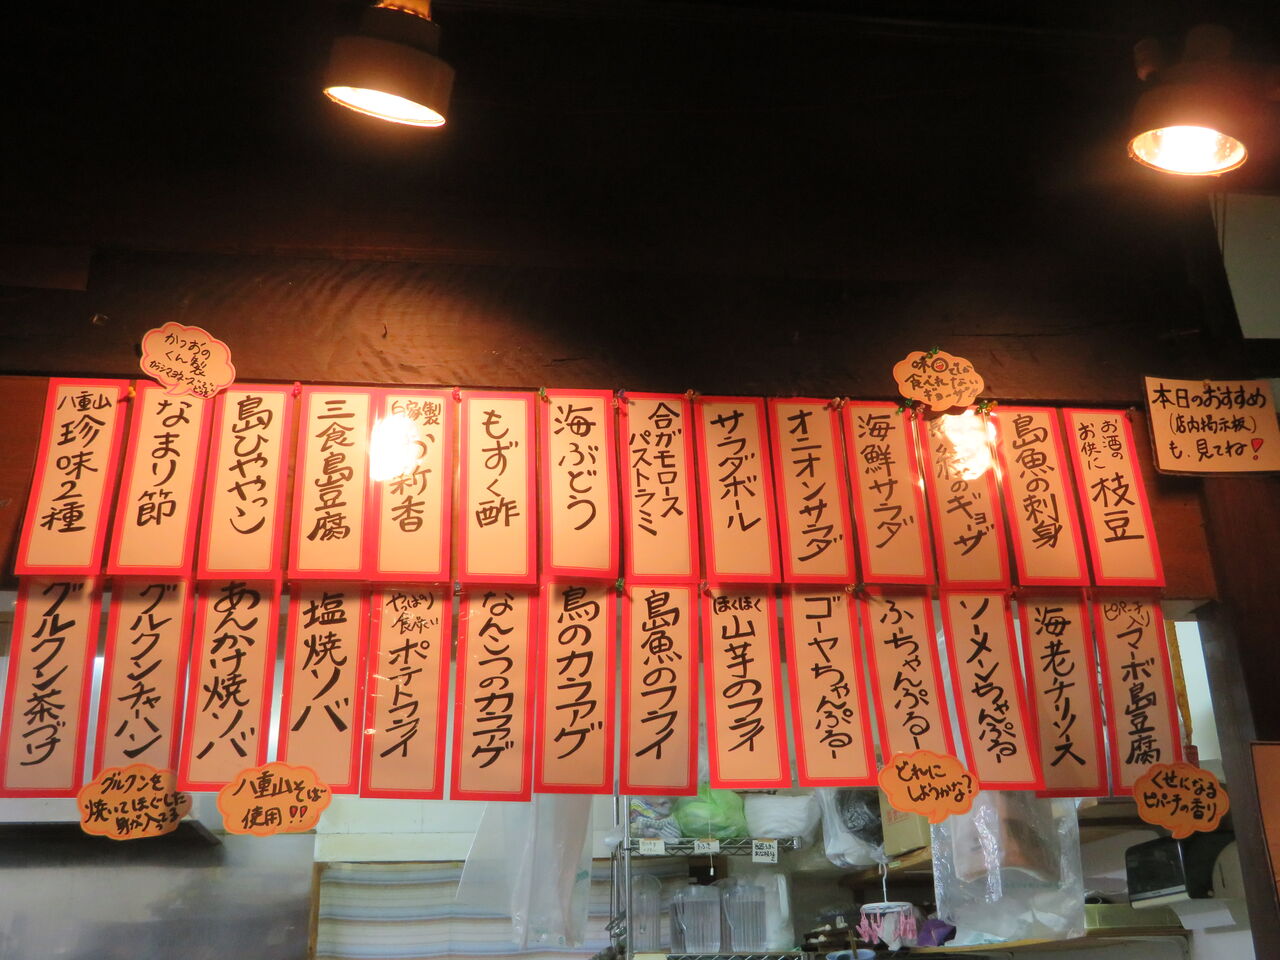 本日のおすすめ
(店内掲示板)
も、見てね
お酒の
お供に
枝豆
島魚の刺身
味
食べれない
ギョーザ
のギョーザ
海鮮サラダ
オニオンサラダ
サラダボール
合ガモロース
パストラミ
海ぶどう
もずく酢
自家製
お新香
三食島豆腐
島ひややっこ
かつおの
くん製
なまり節
八重山
珍味2種
ピパーチ入り
マーボ島豆腐
くせになる
ピパーチの香り
海老チリソース
ソーメンちゃんぷるー
ふちゃんぷるー
どれに
しようかな?
ゴーヤちゃんぷるー
ほくほく
山芋のフライ
島魚のフライ
鳥のカラアゲ
なんこつのカラアゲ
やっぱり
食べたい
ポテトフライ
塩焼ソバ
あんかけ焼ソバ
八重山そば
使用!!
グルクンチャーハン
グルクンを
焼いてほぐした
身が入ってる
グルクン茶づけ